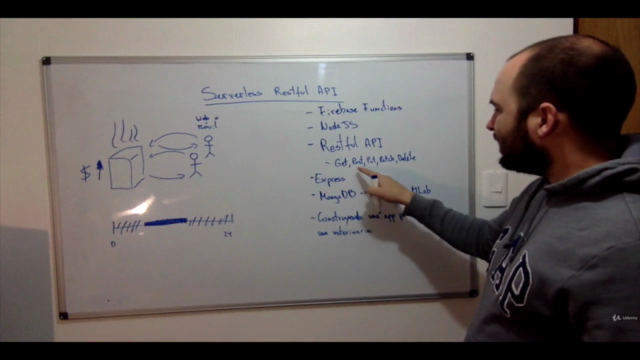 Serverless Restful API
Web o
Movil
$
0
24
- Firebase Functions
- NodeJS
- Restful API
- Get, Post, Put, Patch, Delete
- Express
- MongoDB - MLab
- Construyendo una app p
una veterinaria
GAP
Udemy